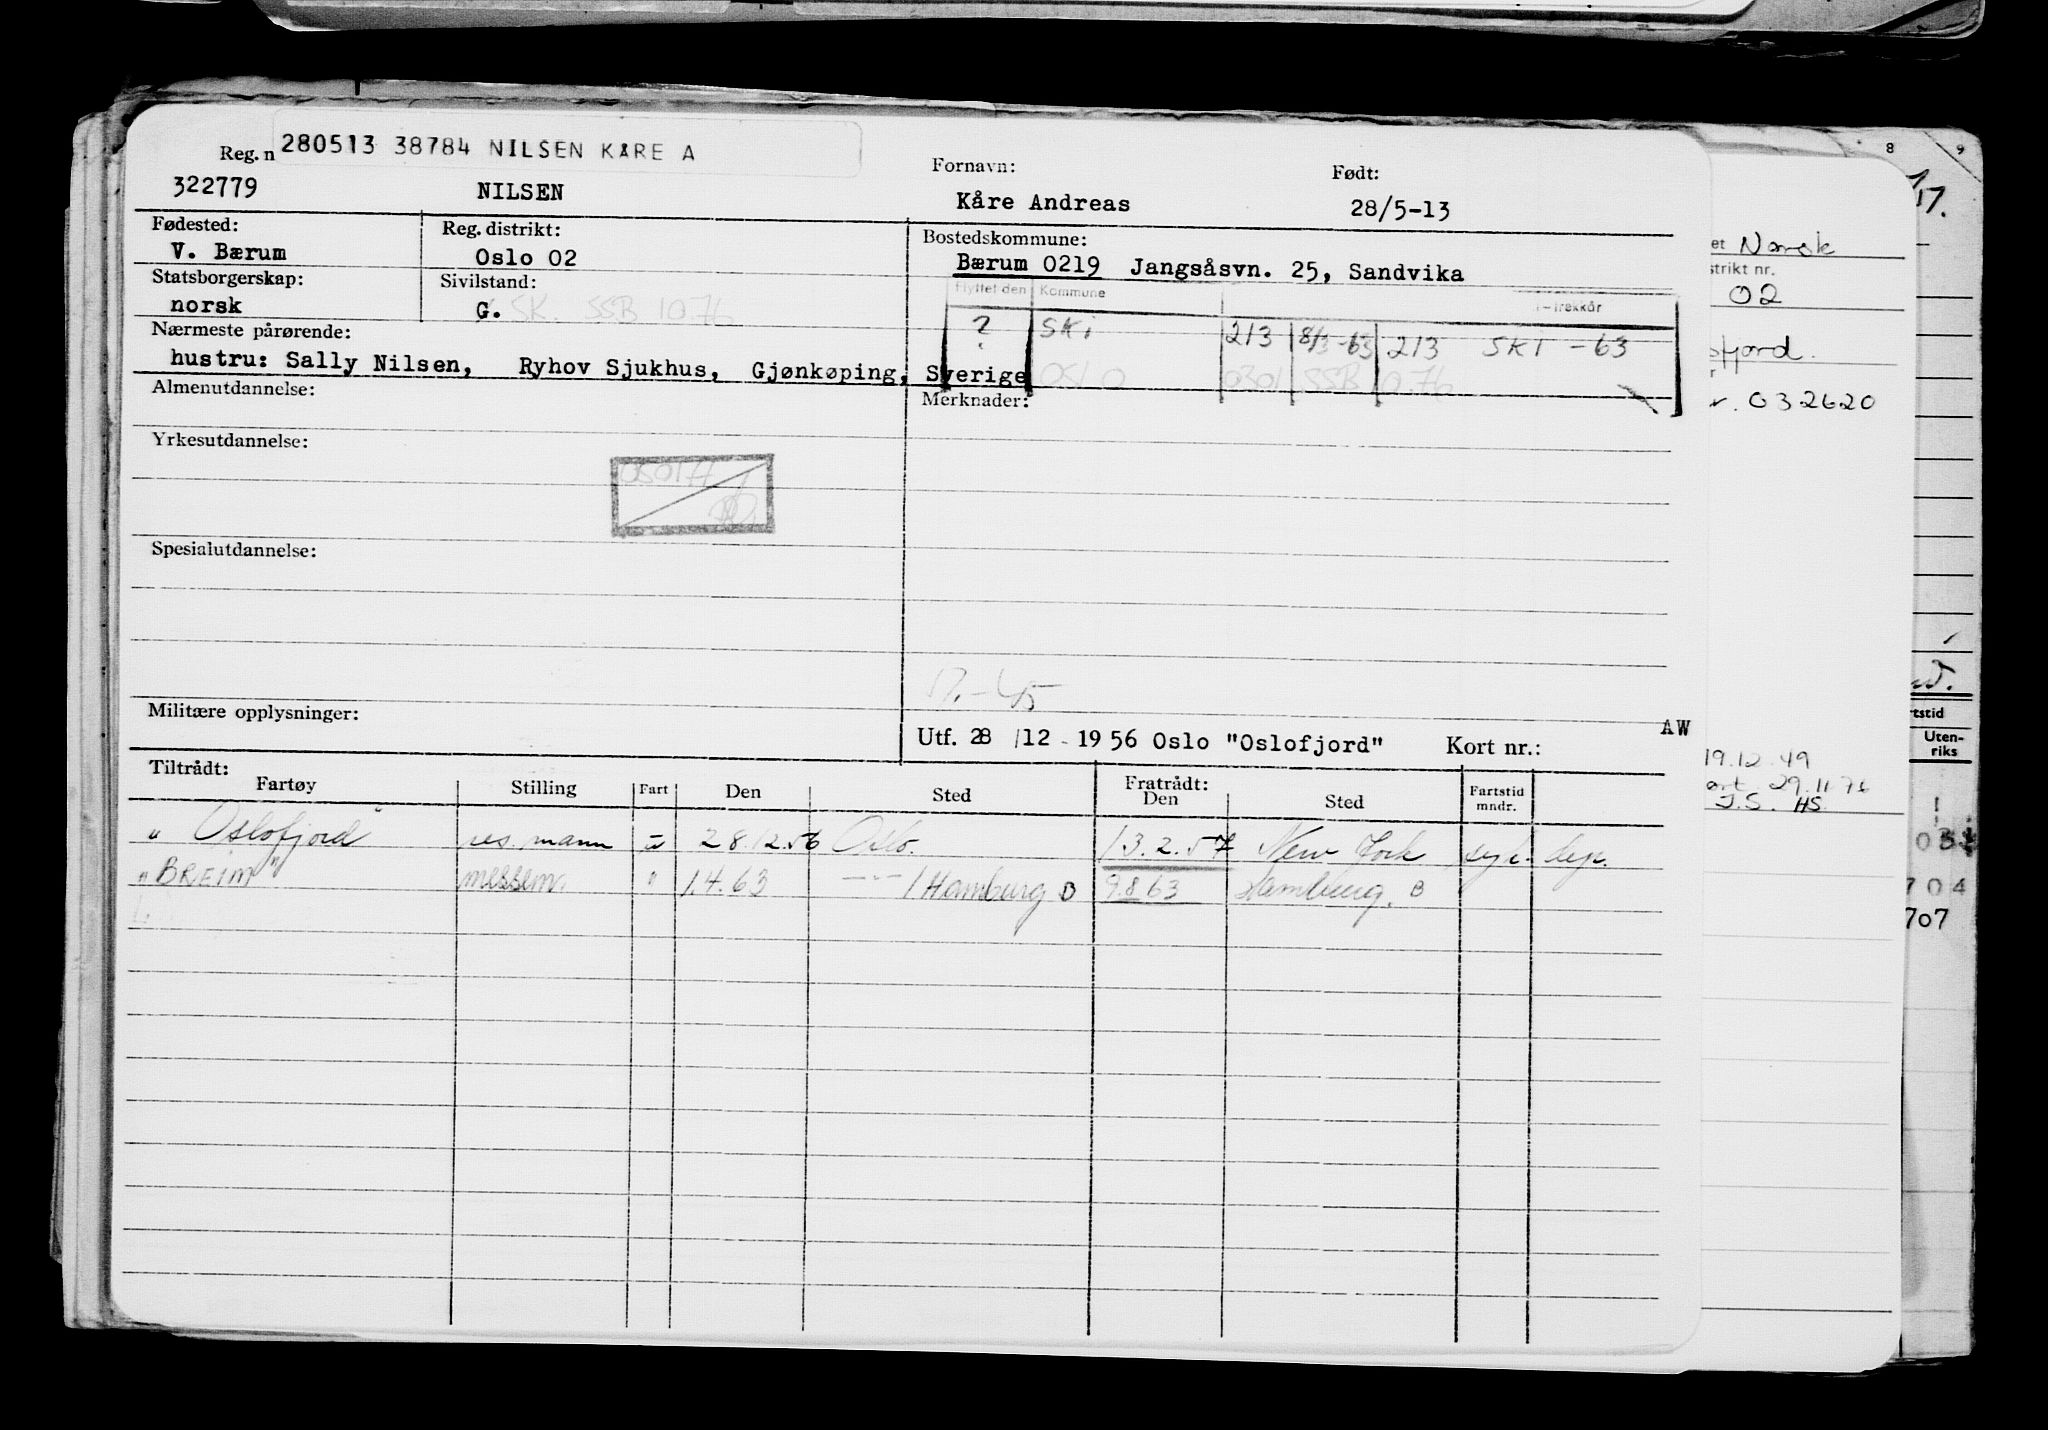 Reg. n 280513 38784 NILSEN KÅRE A
Fornavn: Født:
322779 NILSEN Kåre Andreas 28/5-13
Fødested: Reg. distrikt: Bostedskommune:
V. Bærum Oslo 02 Bærum 0219 Jangsåsvn. 25, Sandvika
Statsborgerskap: Sivilstand: Flyttet den Kommune trekkår
norsk G. SK. SSB 10.76 ? SKI 213 8/3-63 213 SKI -63
Nærmeste pårørende:
hustru: Sally Nilsen, Ryhov Sjukhus, Gjønkøping, Sverige OSLO 0301 SSB 10.76
Almenutdannelse: Merknader:
Yrkesutdannelse:
Spesialutdannelse:
Militære opplysninger:
Utf. 28/12-1956 Oslo "Oslofjord" Kort nr.: AW
Tiltrådt: Fratrådt:
Fartøy Stilling Fart Den Sted Den Sted Fartstid mndr.
"Oslofjord" res. mann u 28.12.56 Oslo. 13.2.57 New York
"BREIM" messem. " 1.4.63 Hamburg B 9.8.63 Hamburg. B
8 9
et Norsk
strikt nr.
02
sfjord.
r. 032620
19.12.49
29.11.76
J.S. HS
rtstid
Uten-
riks
704
707